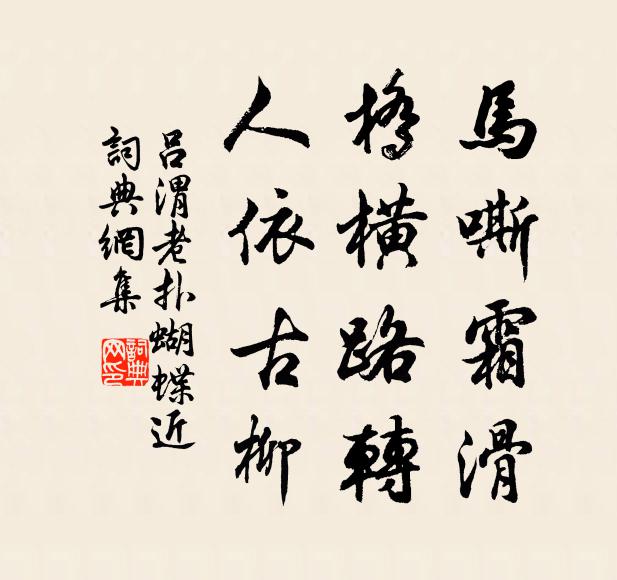 馬嘶霜滑
橋橫路轉
人依古柳
呂渭老扑蝴蝶近
詞典網集
詞典网印